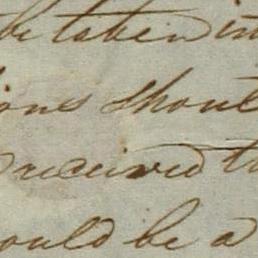 be taken in
ions shoul
received th
ould be a